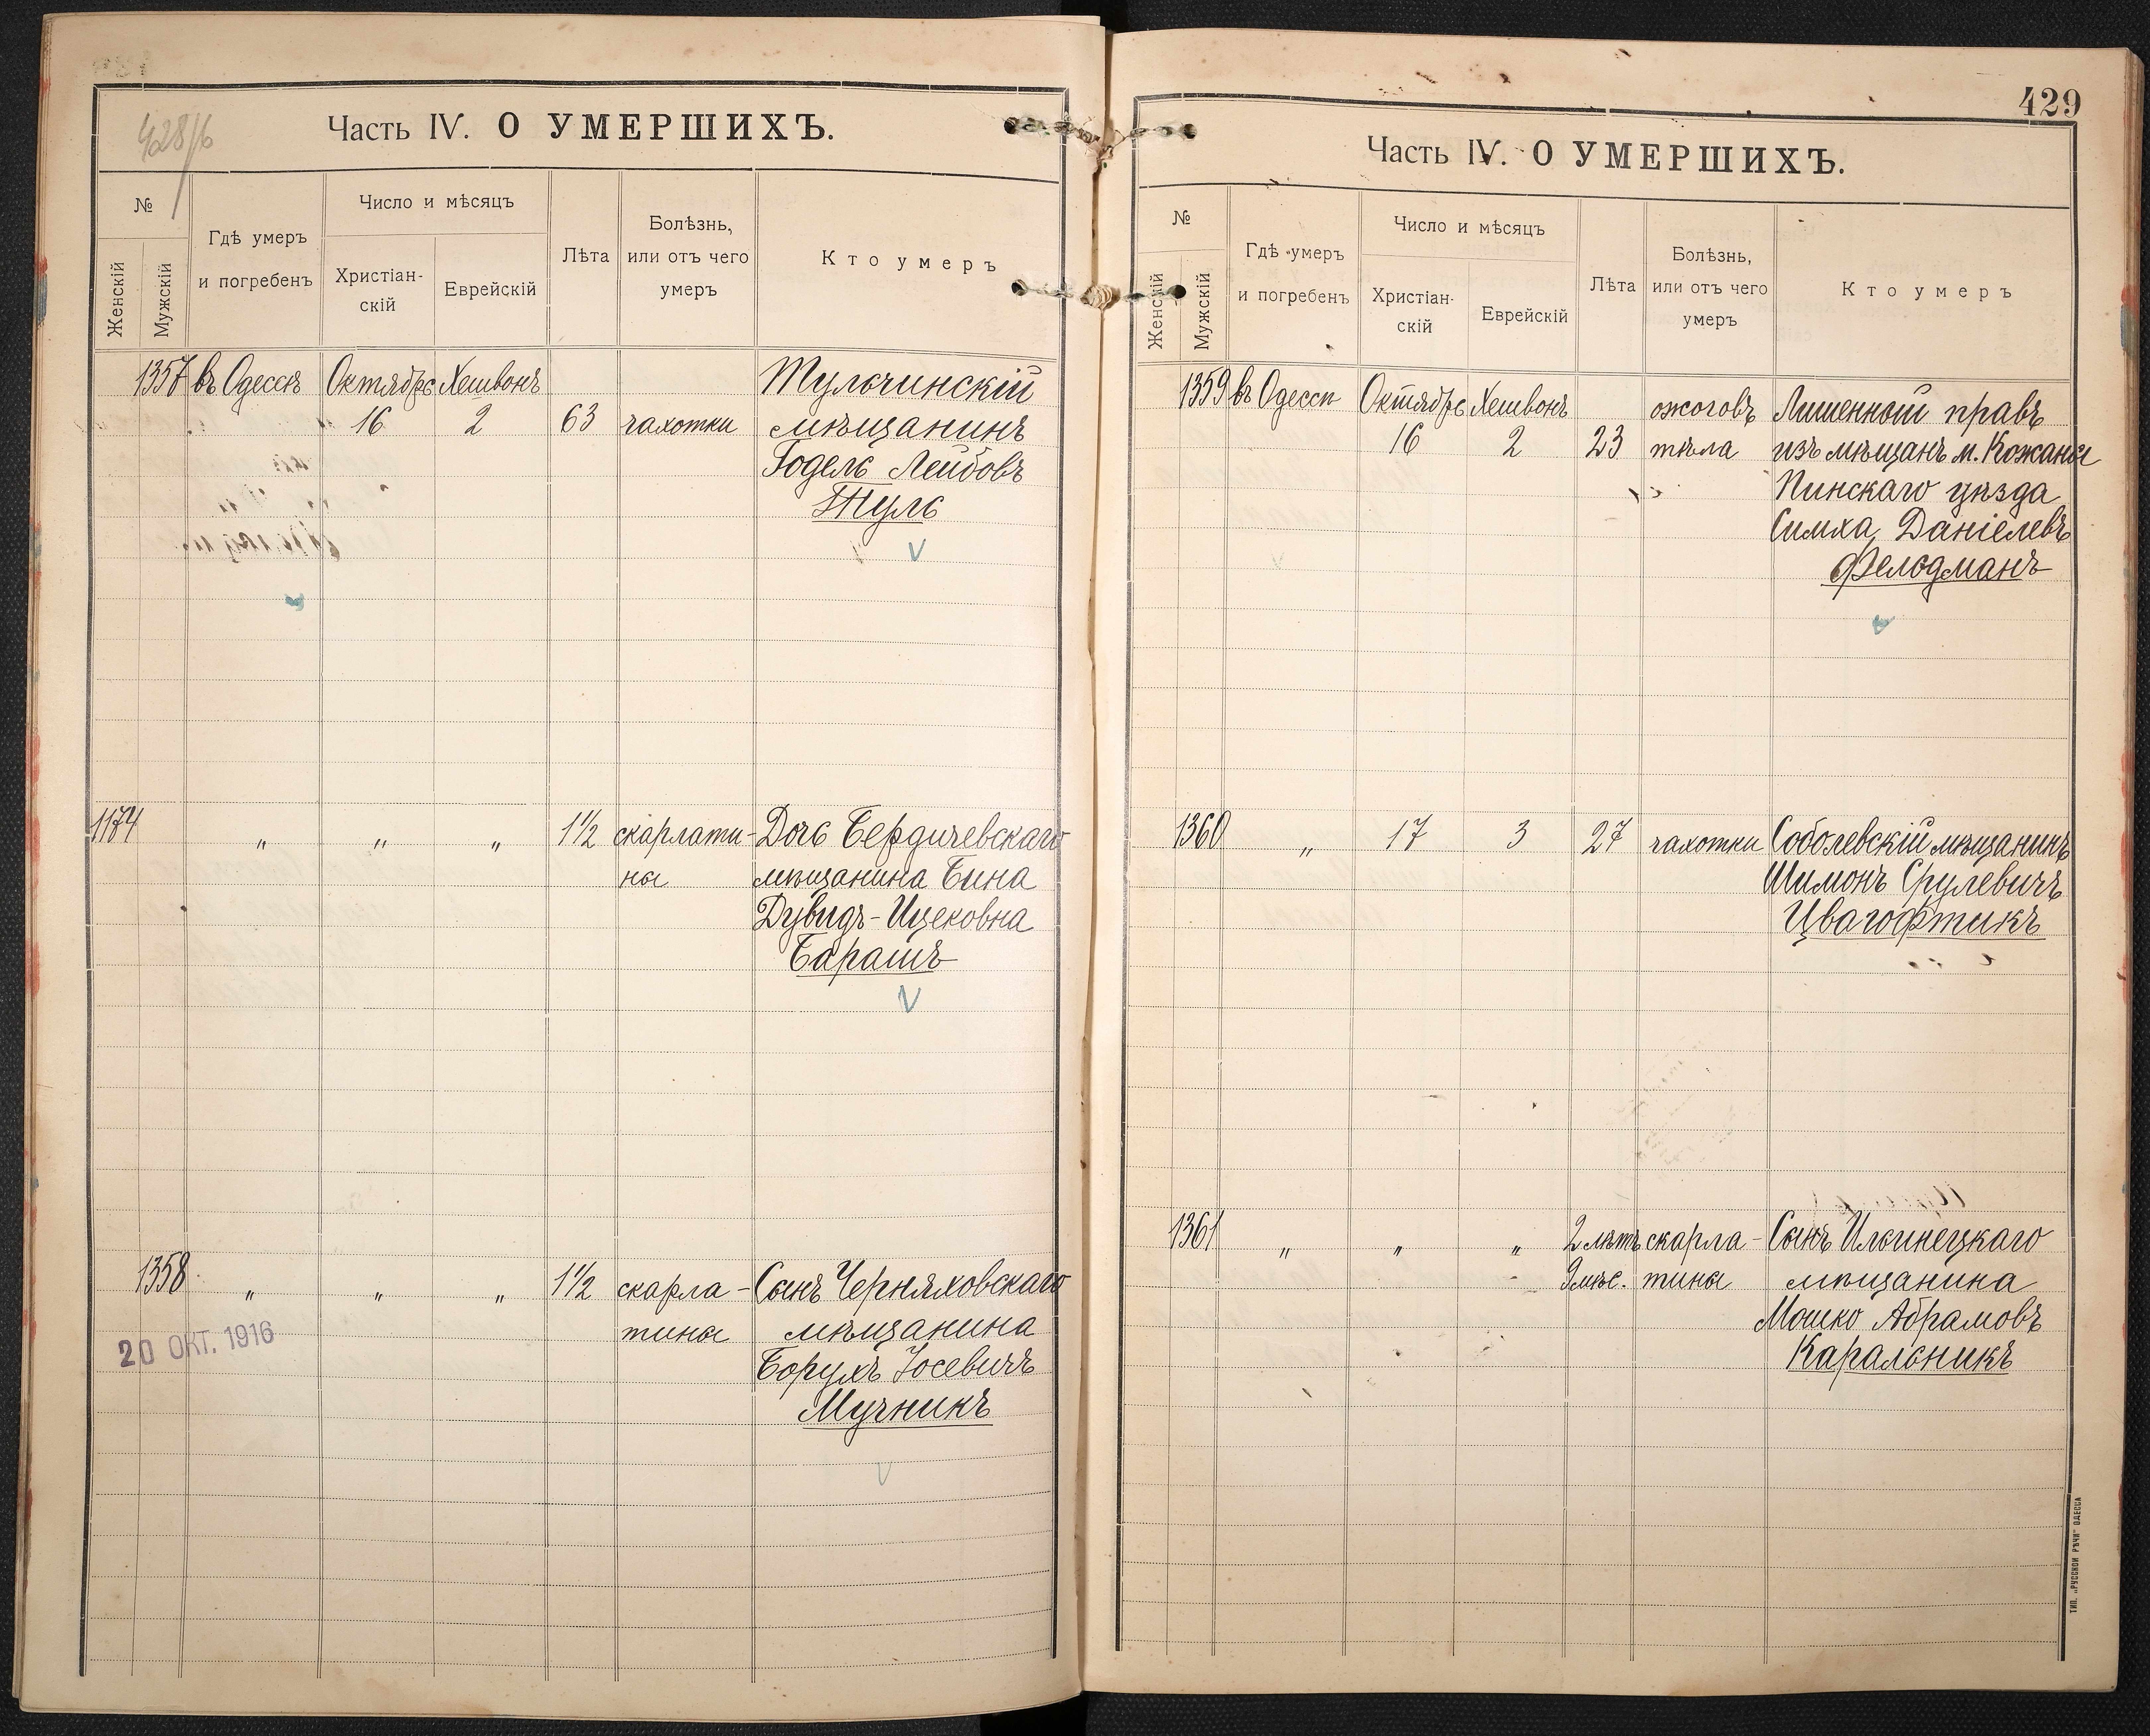 428/б
Часть IV. О УМЕРШИХЪ.
№
Женскій
Мужскій
Гдѣ умеръ
и погребенъ
Число и мѣсяцъ
Христіан-
скій
Еврейскій
Лѣта
Болѣзнь,
или отъ чего
умеръ
Кто умеръ
1357 въ Одессѣ Октябрь Хешвонъ Тульчинскій
16 2 63 чахотки мѣщанинъ
Годель Лейбовъ
Шуль
1174 " " " 1½ скарлати- Дочь Бердичевскаго
ны мѣщанина Бина
Дувидъ-Ицековна
Барашъ
1358 " " " 1½ скарла- Сынъ Черняховскаго
тины мѣщанина
20 ОКТ. 1916
Борухъ Іосевичъ
Мучникъ
429
Часть IV. О УМЕРШИХЪ.
№
Женскій
Мужскій
Гдѣ умеръ
и погребенъ
Число и мѣсяцъ
Христіан-
скій
Еврейскій
Лѣта
Болѣзнь,
или отъ чего
умеръ
Кто умеръ
1359 въ Одессѣ Октябрь Хешвонъ ожоговъ Лишенный правъ
16 2 23 тѣла изъ мѣщанъ м. Кожаны
Пинскаго уѣзда
Симха Даніелевъ
Фельдманъ
1360 " 17 3 27 чахотки Соболевскій мѣщанинъ
Шимонъ Срулевичъ
Цвагофтикъ
1361 " " " 2 лѣтъ скарла- Сынъ Ильинецкаго
9 мѣс. тины мѣщанина
Мошко Абрамовъ
Каральникъ
ТИП. „РУССКОЙ РѢЧИ" ОДЕССА